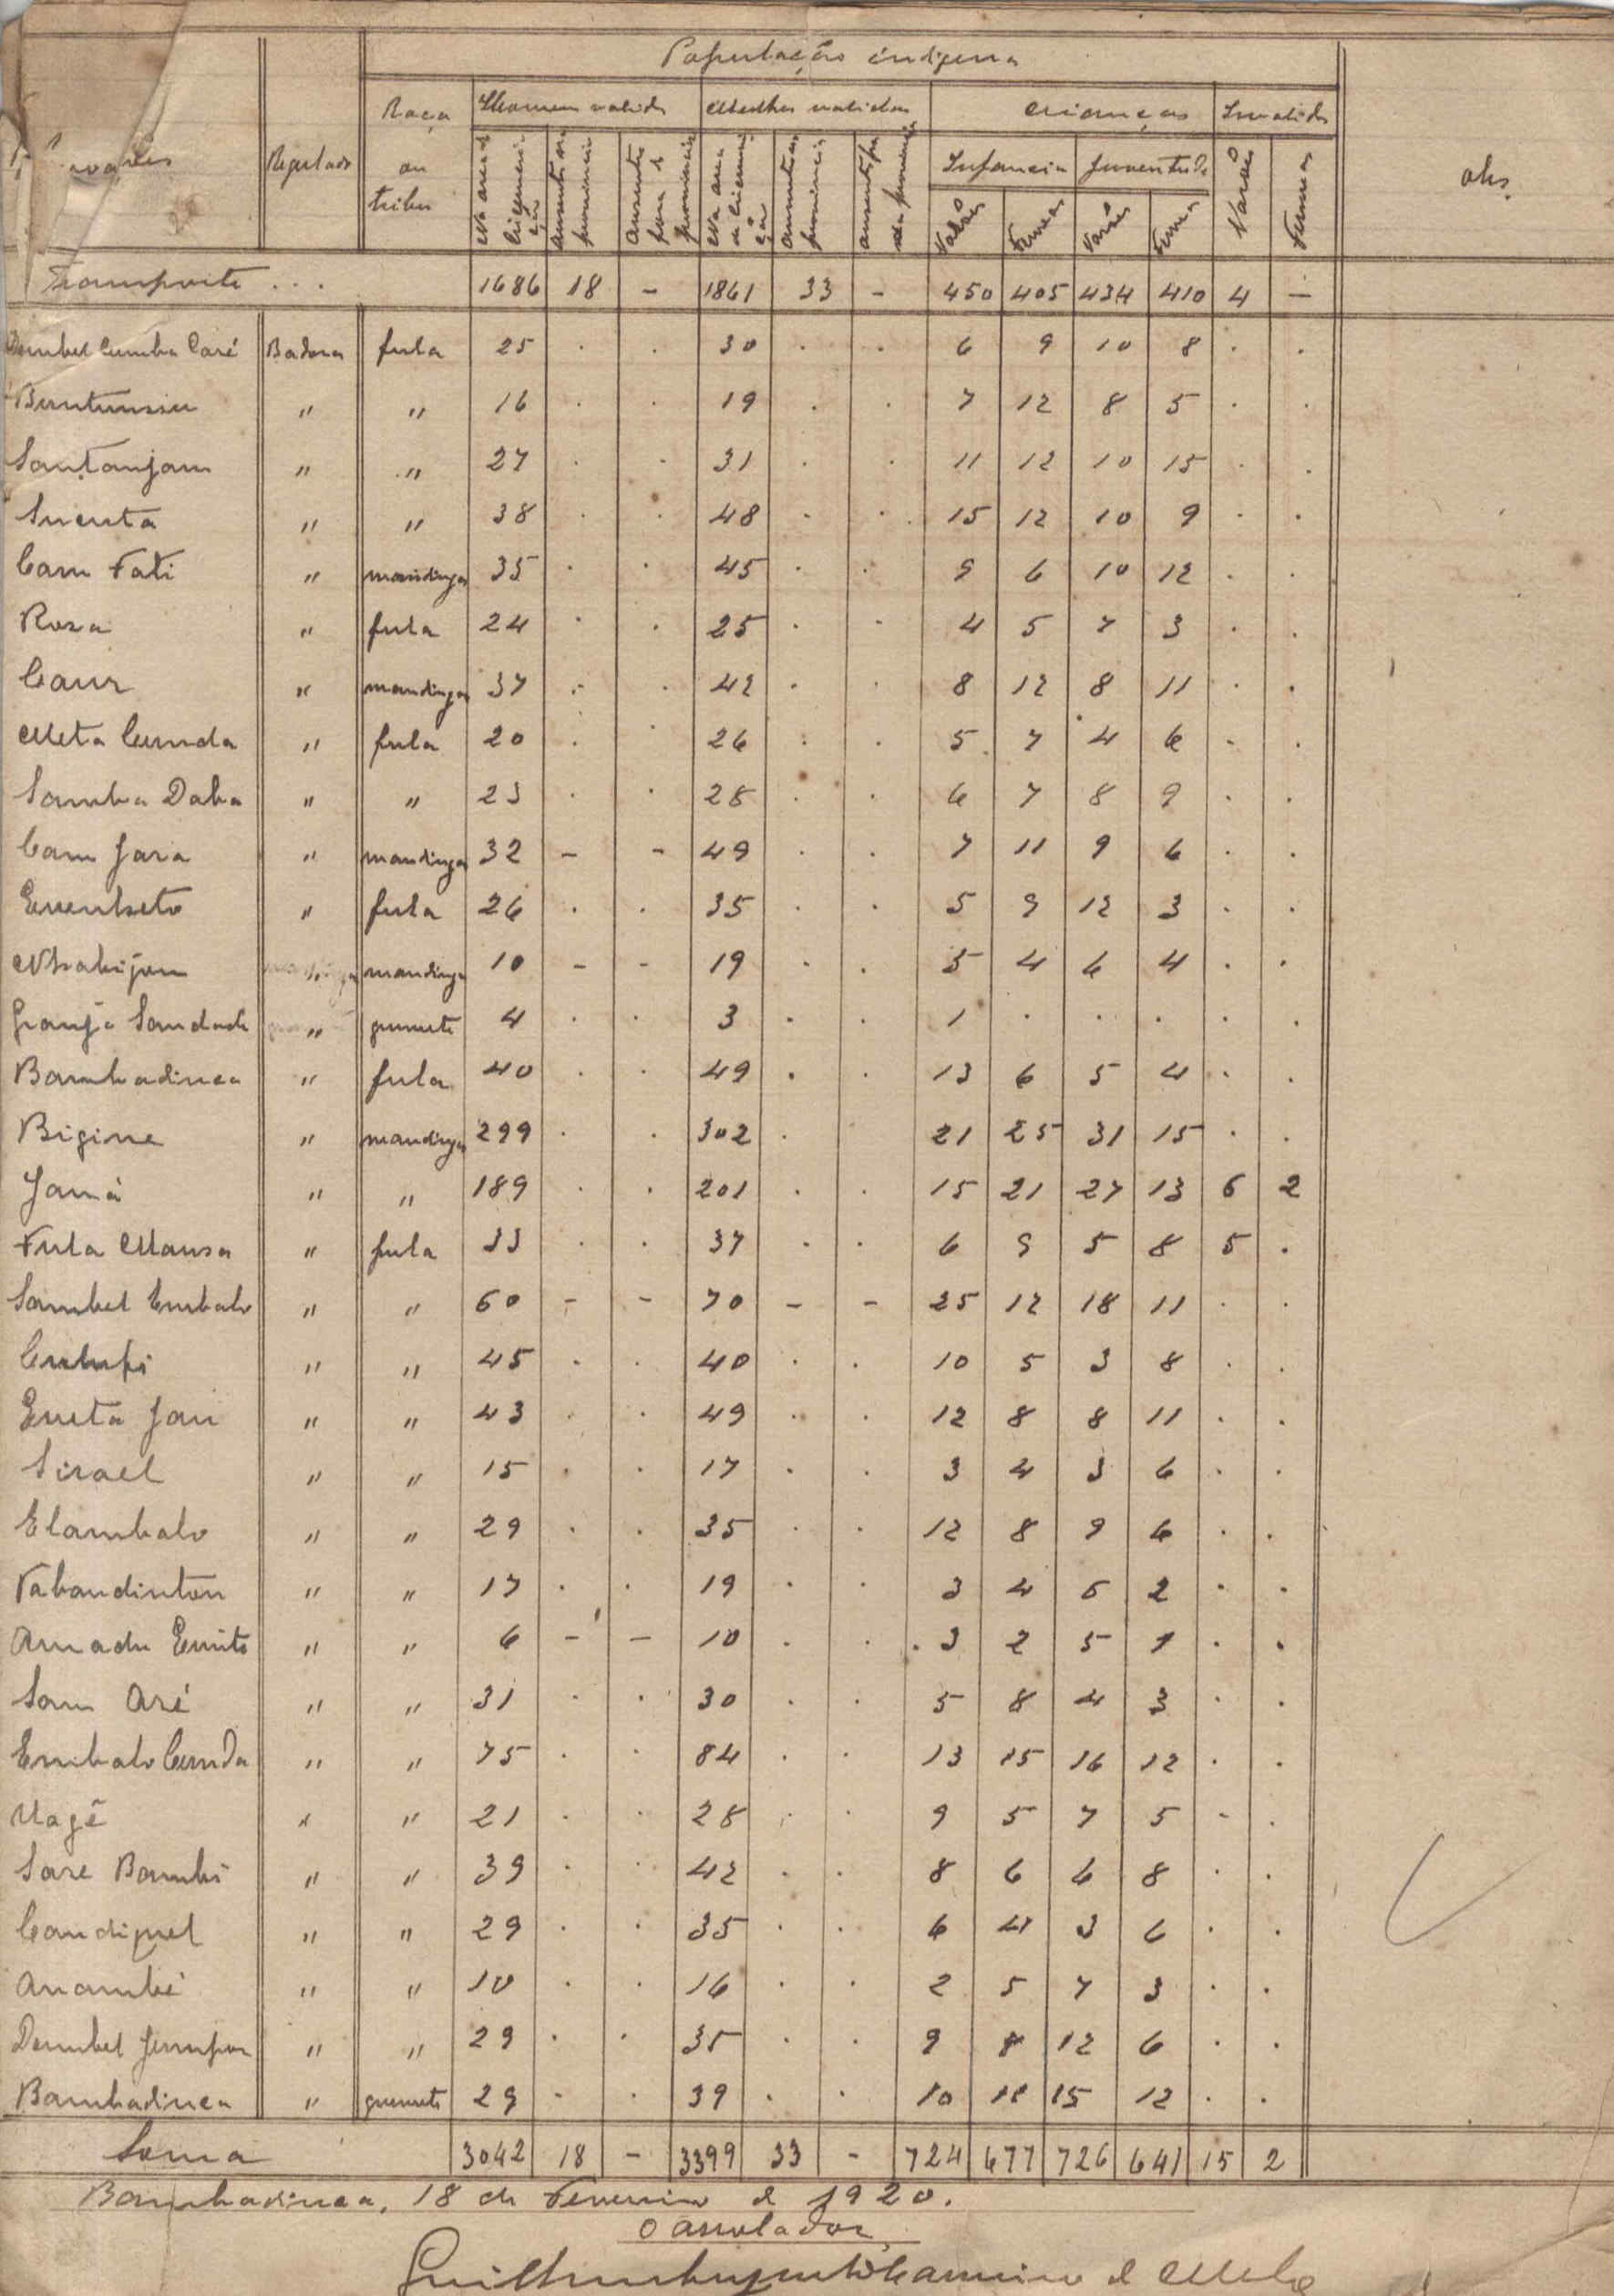 População indigena
Povoações | Regulado | Raça ou tribu | Homens validos | Mulheres validas | Crianças | Invalidos | obs.
Na area da circunscrição | ausentes na provincia | Ausentes fora da provincia | Na area da circunscrição | ausentes na provincia | ausentes fora da provincia | Infancia | Juventude | Varões | Femeas
Varões | Femeas | Varões | Femeas
Transporte ... 1686 18 - 1861 33 - 450 405 434 410 4 -
Dembel Cumba Caré Badora fula 25 . . 30 . . 6 9 10 8 . .
Buntunsu " " 16 . . 19 . . 7 12 8 5 . .
Santanjam " " 27 . . 31 . . 11 12 10 15 . .
Sucuta " " 38 . . 48 . . 15 12 10 9 . .
Cam Fati " mandinga 35 . . 45 . . 9 6 10 12 . .
Roza " fula 24 . . 25 . . 4 5 7 3 . .
Caur " mandinga 37 . . 42 . . 8 12 8 11 . .
Meta Cunda " fula 20 . . 26 . . 5 7 4 6 . .
Samba Daba " " 23 . . 28 . . 6 7 8 9 . .
Cam Jara " mandinga 32 - - 49 . . 7 11 9 6 . .
fula 26 . . 35 . . 5 9 12 3 . .
Nhabijam " mandinga 10 - - 19 . . 5 4 6 4 . .
Granja " grumete 4 . . 3 . . 1 . . . . .
Bambadinca " fula 40 . . 49 . . 13 6 5 4 . .
Bigine " mandinga 299 . . 302 . . 21 25 31 15 . .
Janá " " 189 . . 201 . . 15 21 27 13 6 2
Fula Mansa " fula 33 . . 37 . . 6 9 5 8 5 .
Sambel Embalo " " 60 - - 70 - - 25 12 18 11 . .
Culupi " " 45 . . 40 . . 10 5 3 8 . .
Eueta Jau " " 43 . . 49 . . 12 8 8 11 . .
Sirael " " 15 . . 17 . . 3 4 3 6 . .
Elambalo " " 29 . . 35 . . 12 8 9 6 . .
Tabandinton " " 17 . . 19 . . 3 4 5 2 . .
Amadu " " 6 - - 10 . . 3 2 5 1 . .
Sam Aré " " 31 . . 30 . . 5 8 4 3 . .
Embalo Cunda " " 75 . . 84 . . 13 15 16 12 . .
Uagé " " 21 . . 28 . . 9 5 7 5 - .
Sare Bambi " " 39 . . 42 . . 8 6 6 8 . .
Candiquel " " 29 . . 35 . . 6 4 3 6 . .
Anambé " " 10 . . 16 . . 2 5 7 3 . .
Dembel Jumpor " " 29 . . 35 . . 9 8 12 6 . .
Bambadinca " grumete 29 . . 39 . . 10 11 15 12 . .
Soma 3042 18 - 3399 33 - 724 677 726 641 15 2
Bambadinca, 18 de Fevereiro de 1920.
O arrolador,